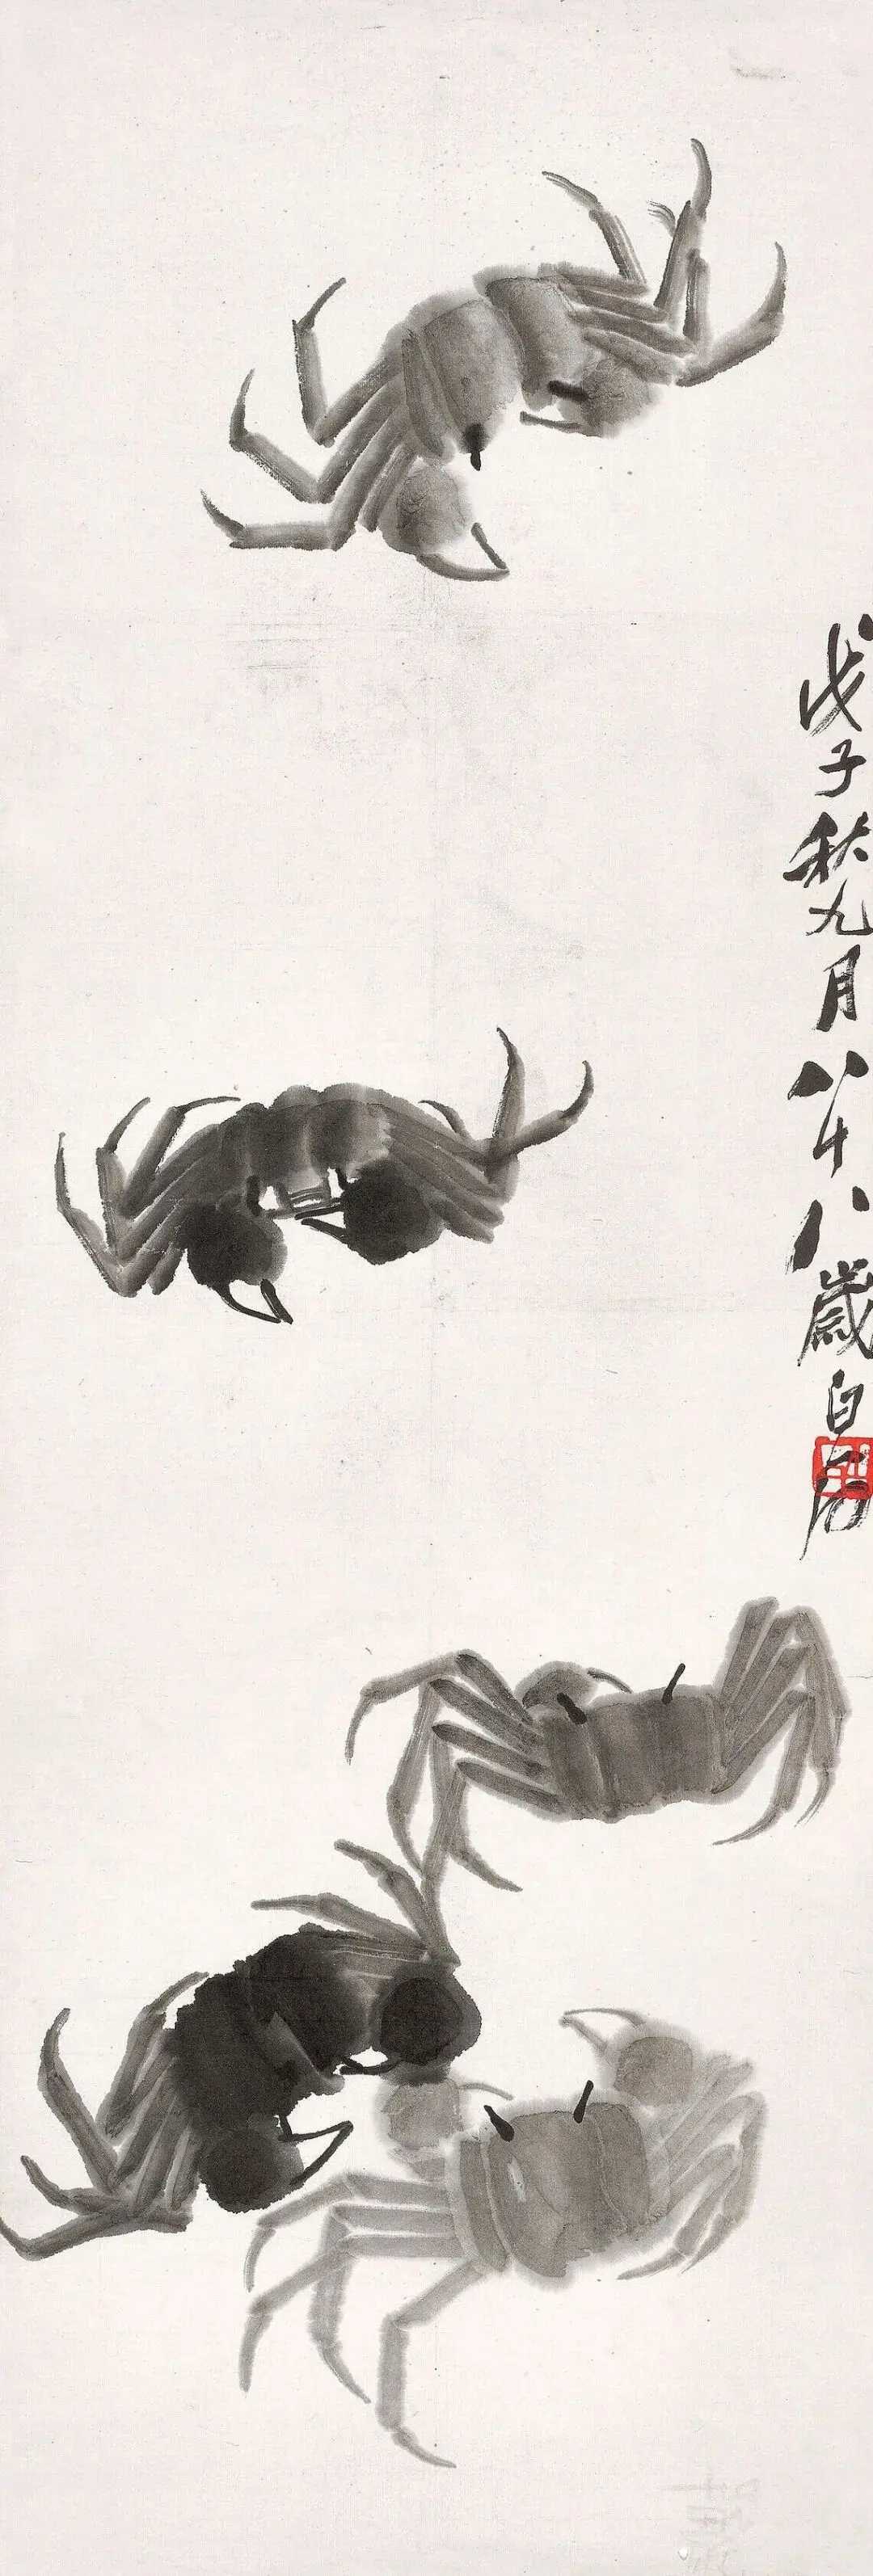 戊子秋九月八十八歲白石